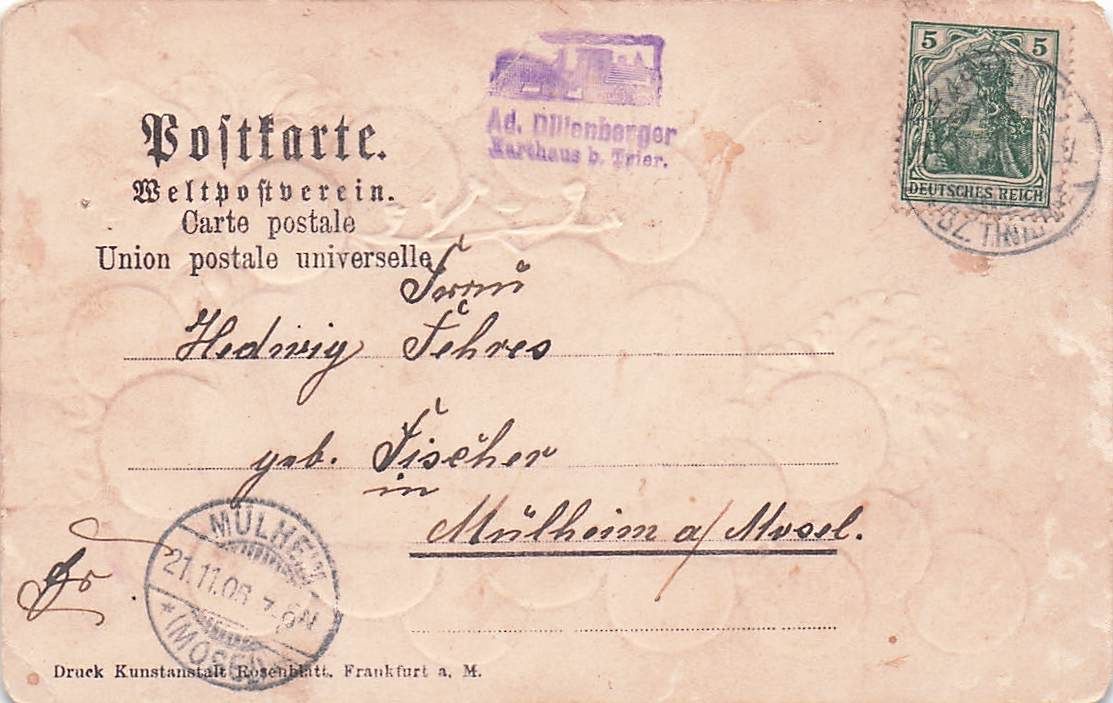 Postkarte.
Weltpostverein.
Carte postale
Union postale universelle
Ad. Dillenberger
Karthaus b. Trier.
5 5
DEUTSCHES REICH
Frau
Hedwig Fehres
geb. Fischer
in
Mülheim a/Mosel.
Fr
MÜLHEIM
21.11.05 7-8N
* (MOSEL)
Druck Kunstanstalt Rosenblatt, Frankfurt a. M.